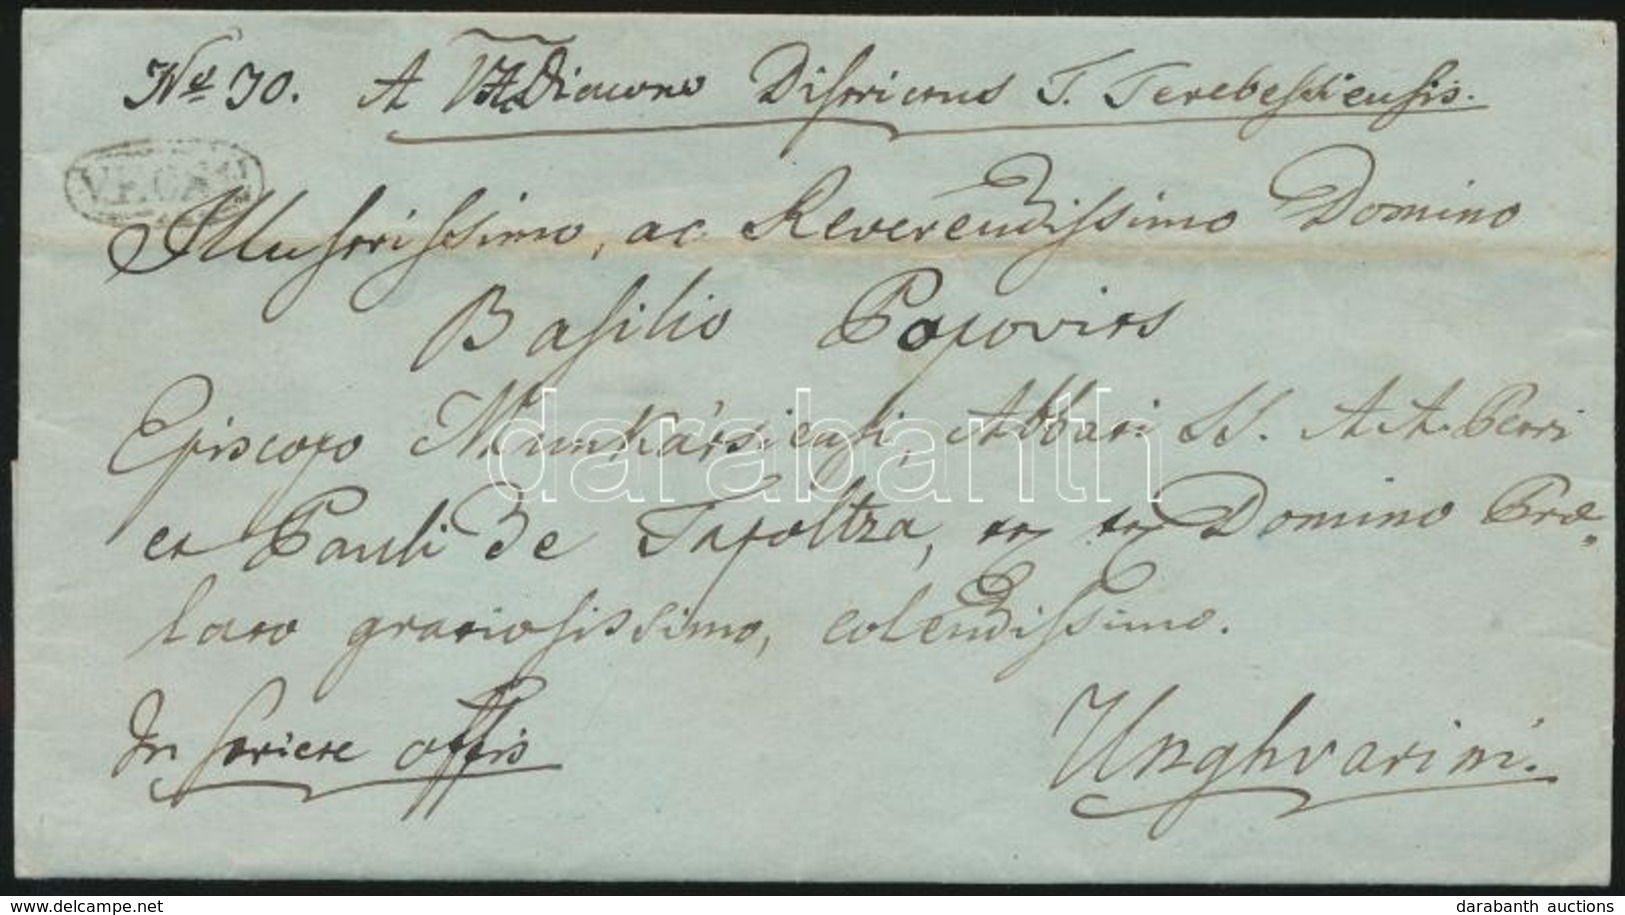 No 70. A V. A. Diacono Districtus T. Terebesiensis.
Illustrissimo, ac Reverendissimo Domino
Basilio Popovits
Episcopo Munkátsiensi, Abbati SS. A. A. Petri
et Pauli de Tapoltza, Domino Præ„
lato gratiosissimo, colendissimo.
In serviere offis
Unghvarini.
darabanth
www.delcampe.net
darabanth auctions